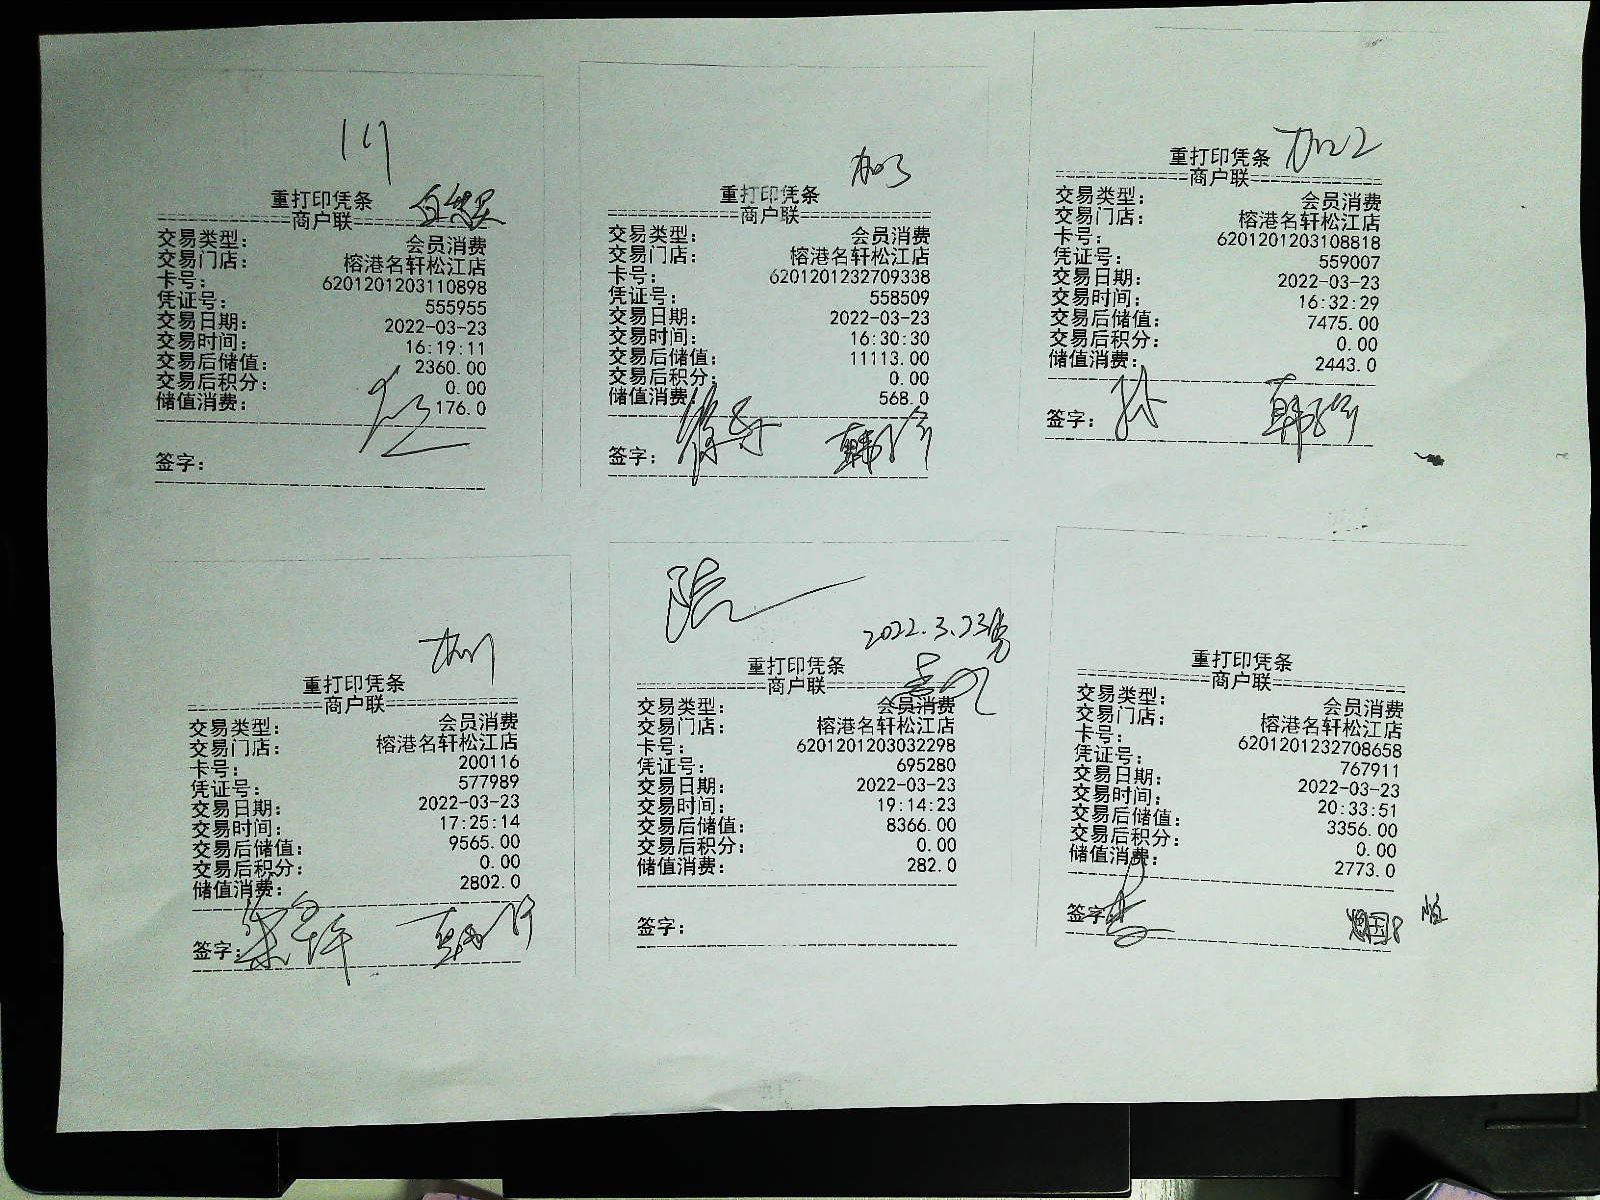 117
重打印凭条
商户联
交易类型： 会员消费
交易门店： 榕港名轩松江店
卡号： 6201201203110898
凭证号： 555955
交易日期： 2022-03-23
交易时间： 16:19:11
交易后储值： 2360.00
交易后积分： 0.00
储值消费： 176.0
签字：
重打印凭条
商户联
交易类型： 会员消费
交易门店： 榕港名轩松江店
卡号： 6201201232709338
凭证号： 558509
交易日期： 2022-03-23
交易时间： 16:30:30
交易后储值： 11113.00
交易后积分： 0.00
储值消费： 568.0
签字：
重打印凭条
商户联
交易类型： 会员消费
交易门店： 榕港名轩松江店
卡号： 6201201203108818
凭证号： 559007
交易日期： 2022-03-23
交易时间： 16:32:29
交易后储值： 7475.00
交易后积分： 0.00
储值消费： 2443.0
签字：
重打印凭条
商户联
交易类型： 会员消费
交易门店： 榕港名轩松江店
卡号： 200116
凭证号： 577989
交易日期： 2022-03-23
交易时间： 17:25:14
交易后储值： 9565.00
交易后积分： 0.00
储值消费： 2802.0
签字：
2022.3.23
重打印凭条
商户联
交易类型： 会员消费
交易门店： 榕港名轩松江店
卡号： 6201201203032298
凭证号： 695280
交易日期： 2022-03-23
交易时间： 19:14:23
交易后储值： 8366.00
交易后积分： 0.00
储值消费： 282.0
签字：
重打印凭条
商户联
交易类型： 会员消费
交易门店： 榕港名轩松江店
卡号： 6201201232708658
凭证号： 767911
交易日期： 2022-03-23
交易时间： 20:33:51
交易后储值： 3356.00
交易后积分： 0.00
储值消费： 2773.0
签字：